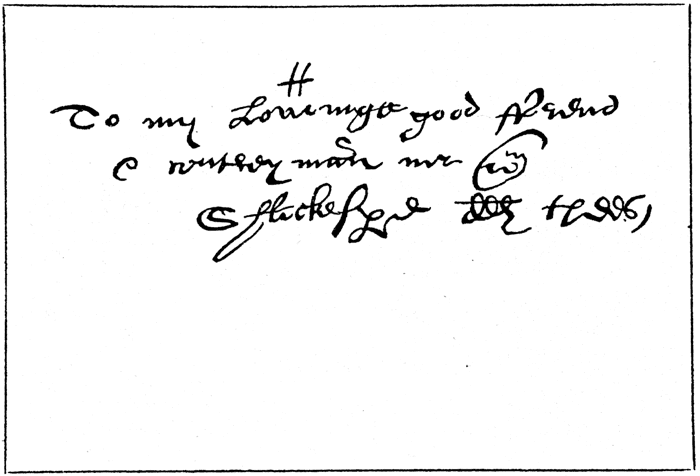 H
To my Loveinge good ffrend
& contreymann mr wm
Shackespere dlr thees